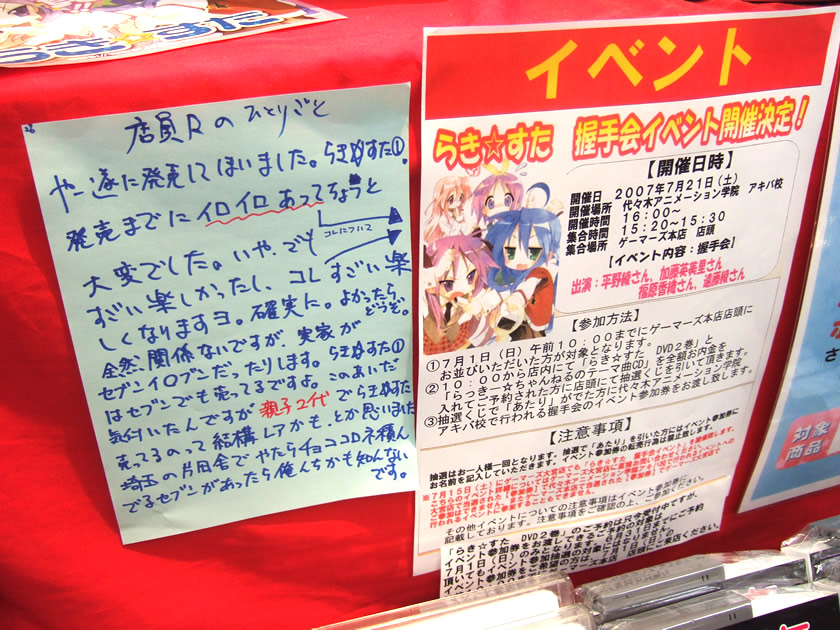 らき☆すた
26
店員Rのひとりごと
やー遂に発売してしまいました。らき☆すた①。
発売までにイロイロあってちょうと
コレについて
大変でした。いや、でも
すごい楽しかったし、コレすごい楽
しくなりますヨ。確実に。よかったら
どうぞ。
全然、関係ないですが、実家が
セブンイレブンだったりします。らき☆すた①
はセブンでも売ってるですよ。このあいだ
気付いたんですが親子2代でらき☆すた
売ってるのって結構レアかも、とか思いました
埼玉の片田舎でやたらチョココロネ積ん
でるセブンがあったら俺んちかも知んない
です。
イベント
らき☆すた 握手会イベント開催決定！
【開催日時】
開催日 2007年7月21日（土）
開催場所 代々木アニメーション学院 アキバ校
開催時間 16:00～
集合時間 15:20～15:30
集合場所 ゲーマーズ本店 店頭
【イベント内容：握手会】
出演：平野綾さん、加藤英美里さん
福原香織さん、遠藤綾さん
【参加方法】
①7月1日（日）午前10:00までにゲーマーズ本店店頭に
お並びいただいた方が対象となります。
②10:00から店内にて「らき☆すた DVD2巻」と
「らっきー☆ちゃんねるのテーマ曲CD」を全額お内金を
入れてご予約された方に店頭にて抽選くじを引いて頂きます。
③抽選くじで「あたり」がでた方に代々木アニメーション学院
アキバ校で行われる握手会のイベント参加券をお渡し致します。
【注意事項】
抽選はお一人様一回となります。抽選で「あたり」を引いた方にはイベント参加券に
お名前を記入していただきます。イベント参加券の転売行為は禁止致します。
その他イベントについての注意事項はイベント参加券に
記載しております。注意事項をご確認の上、ご参加下さい。
「らき☆すた DVD2巻」のご予約は只今受付中ですが、
対象
商品